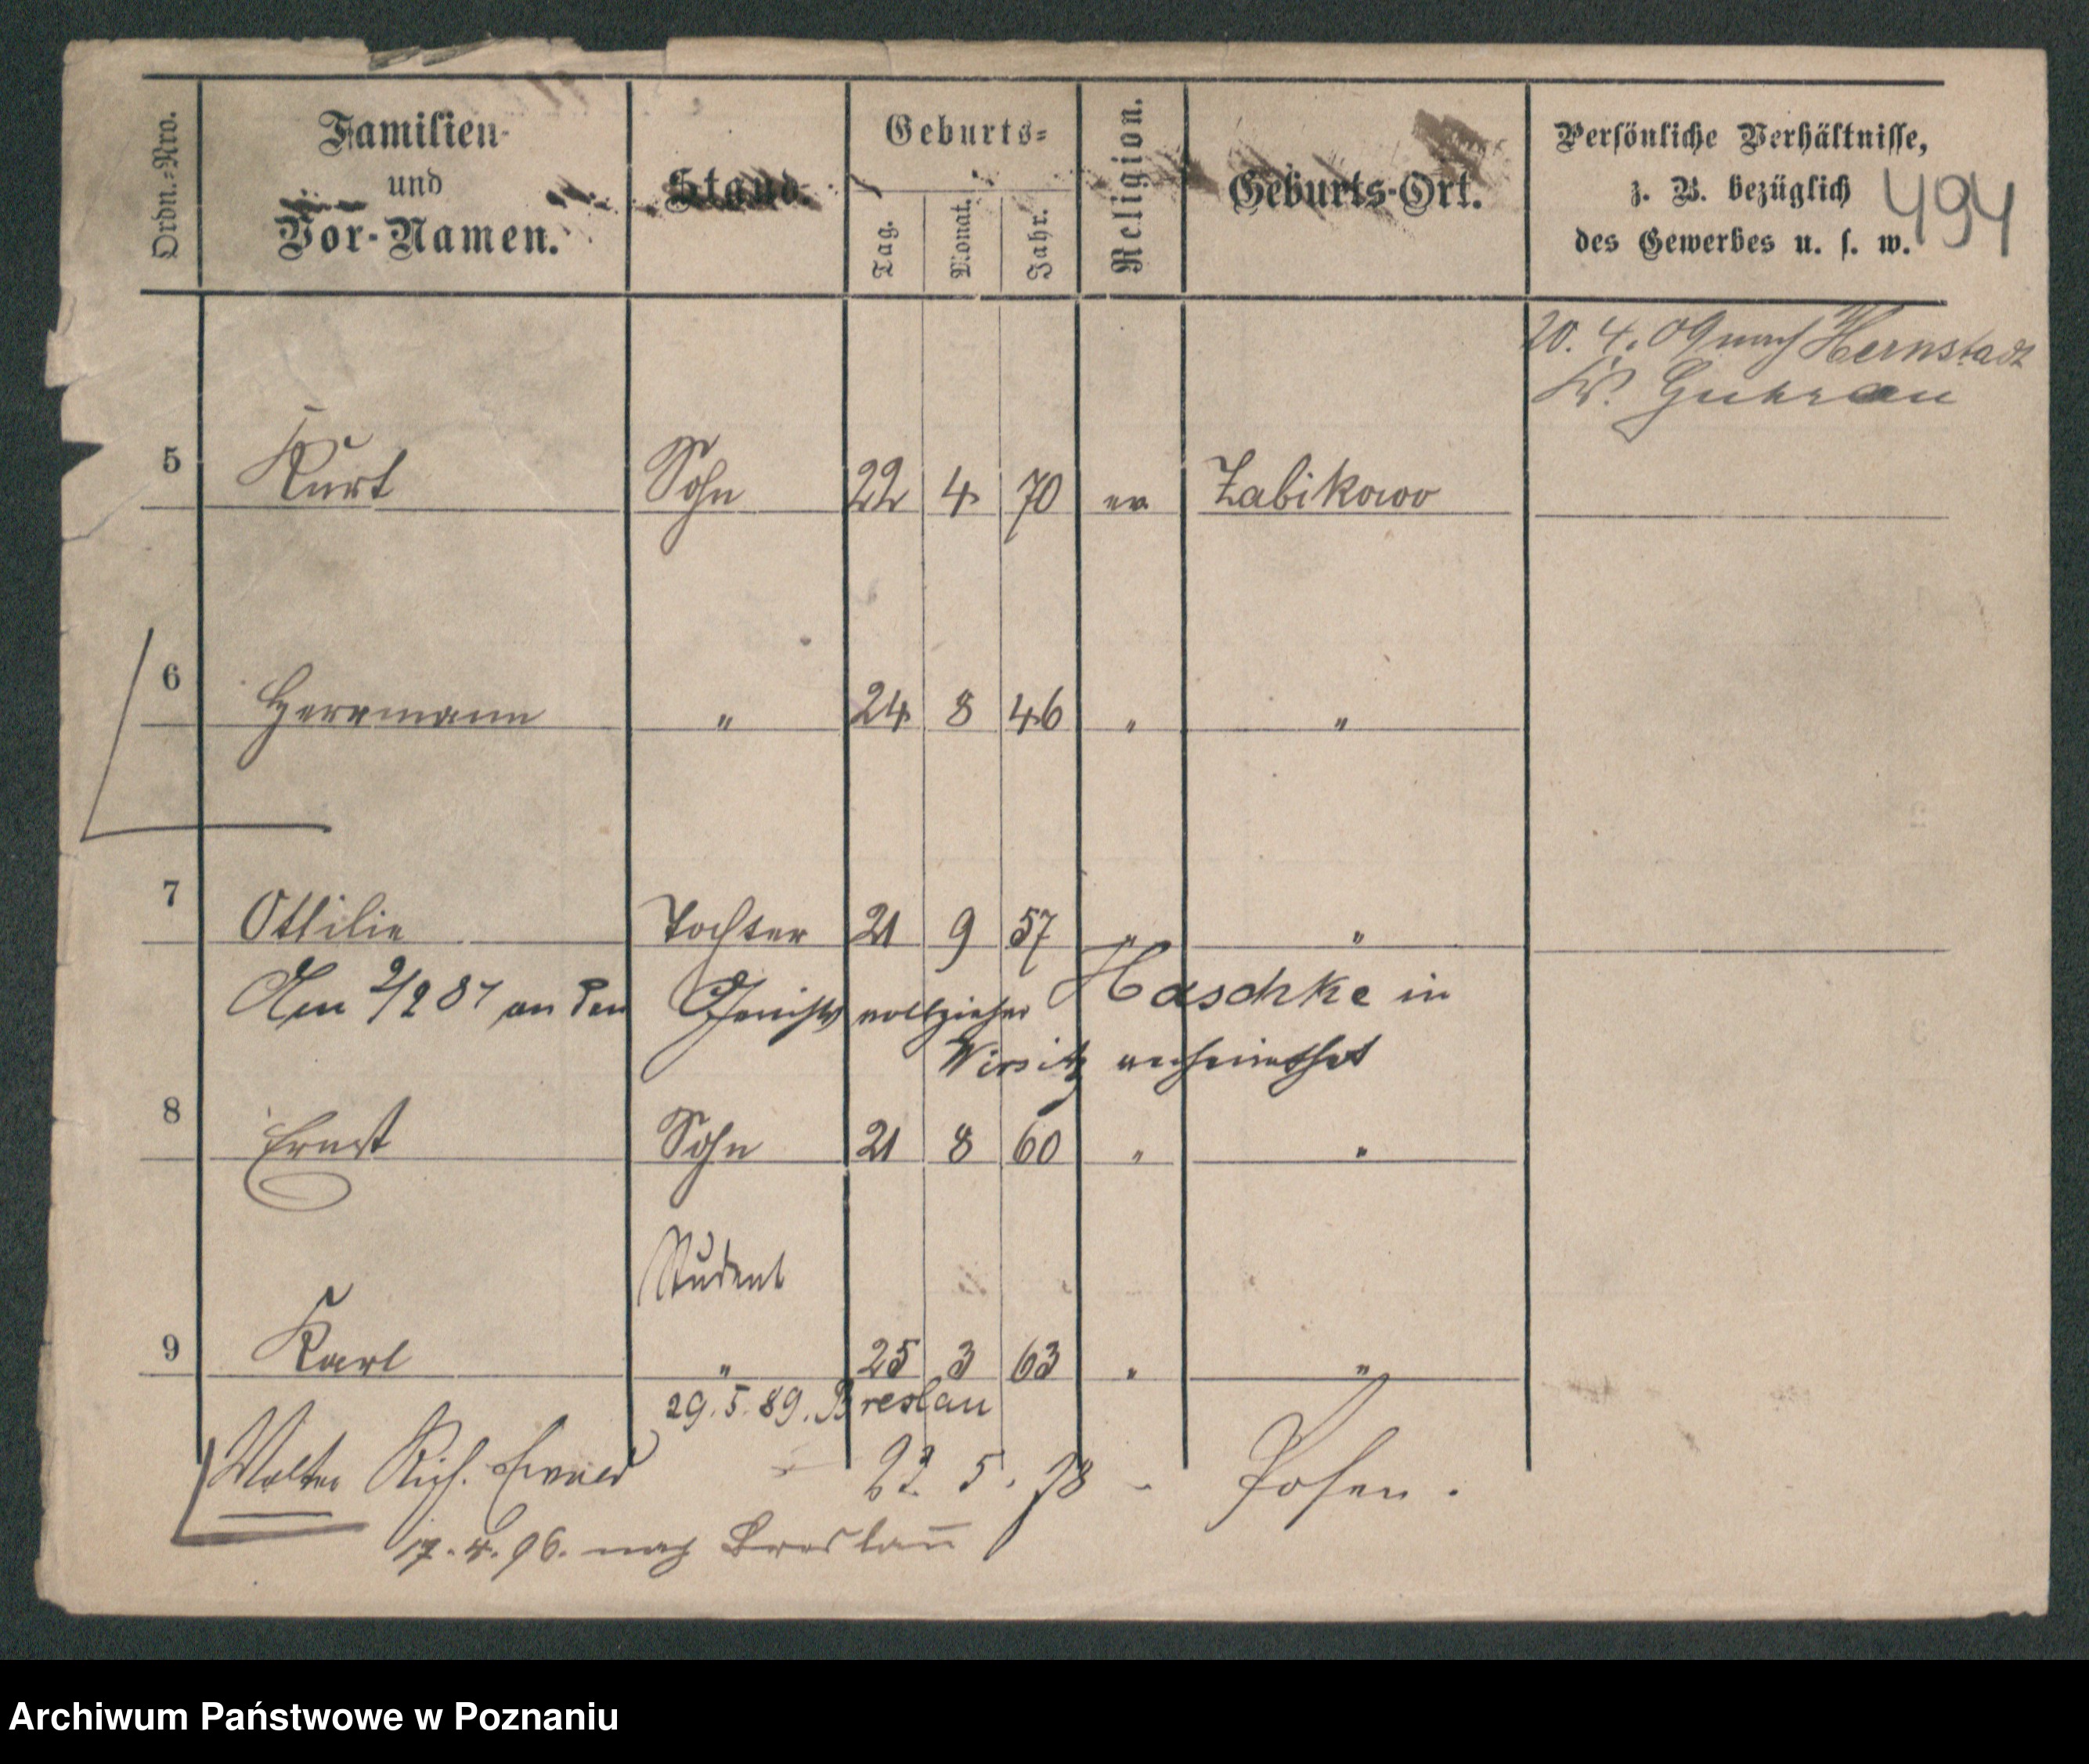 Ordn.-Nro.
Familien-
und
Vor-Namen.
Stand.
Geburts-
Tag.
Monat.
Jahr.
Religion.
Geburts-Ort.
Persönliche Verhältnisse,
z. B. bezüglich
des Gewerbes u. s. w.
494
20. 4. 09 nach Hernstadt
Guhrau
5 Kurt Sohn 22 4 70 ev Zabikowo
6 Herrmann " 24 8 46 " "
7 Ottilie Tochter 21 9 57 " "
Am 2/2 87 an den Gerichtsvollzieher Haschke in
Wirsitz verheirathet
8 Ernst Sohn 21 8 60 " "
Student
9 Karl " 25 3 63 " "
29. 5. 89. Breslau
Walter Rich. 23. 5. 78 - Posen.
17. 4. 96. nach Breslau